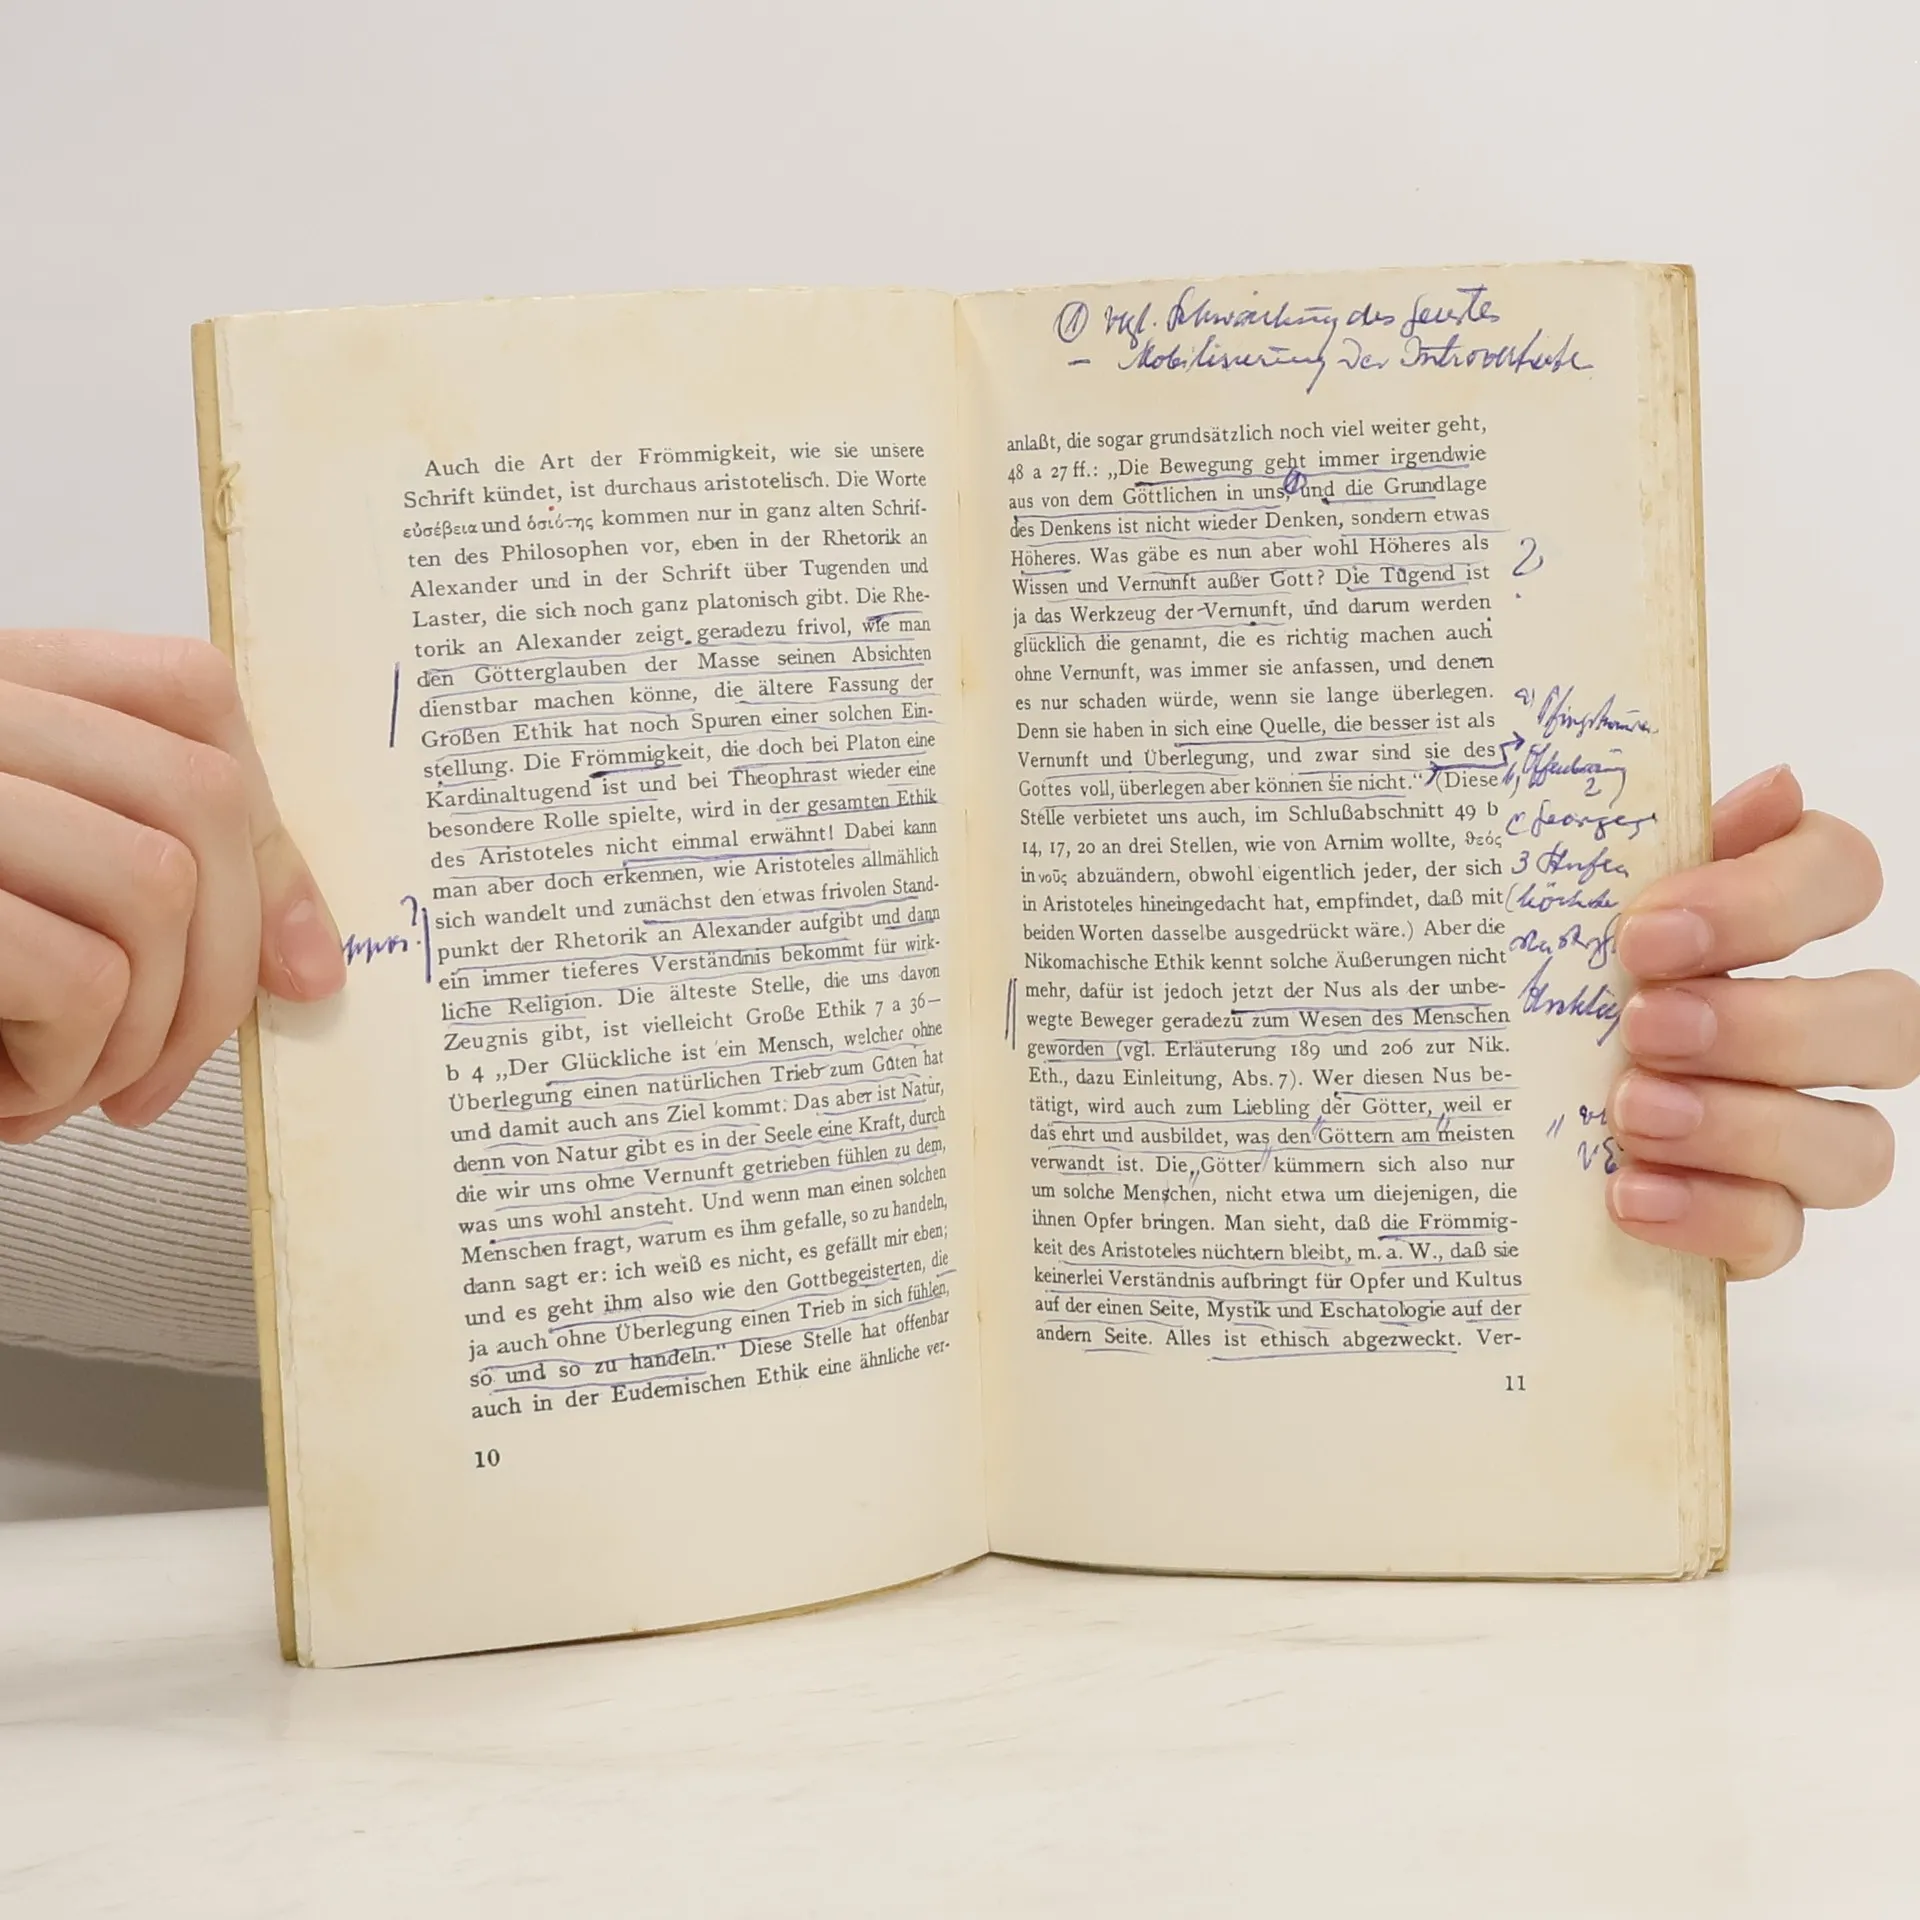 Auch die Art der Frömmigkeit, wie sie unsere
Schrift kündet, ist durchaus aristotelisch. Die Worte
εὐσέβεια und ὁσιότης kommen nur in ganz alten Schrif-
ten des Philosophen vor, eben in der Rhetorik an
Alexander und in der Schrift über Tugenden und
Laster, die sich noch ganz platonisch gibt. Die Rhe-
torik an Alexander zeigt geradezu frivol, wie man
den Götterglauben der Masse seinen Absichten
dienstbar machen könne, die ältere Fassung der
Großen Ethik hat noch Spuren einer solchen Ein-
stellung. Die Frömmigkeit, die doch bei Platon eine
Kardinaltugend ist und bei Theophrast wieder eine
besondere Rolle spielte, wird in der gesamten Ethik
des Aristoteles nicht einmal erwähnt! Dabei kann
man aber doch erkennen, wie Aristoteles allmählich
sich wandelt und zunächst den etwas frivolen Stand-
punkt der Rhetorik an Alexander aufgibt und dann
ein immer tieferes Verständnis bekommt für wirk-
liche Religion. Die älteste Stelle, die uns davon
Zeugnis gibt, ist vielleicht Große Ethik 7 a 36—
b 4 „Der Glückliche ist ein Mensch, welcher ohne
Überlegung einen natürlichen Trieb zum Guten hat
und damit auch ans Ziel kommt: Das aber ist Natur,
denn von Natur gibt es in der Seele eine Kraft, durch
die wir uns ohne Vernunft getrieben fühlen zu dem,
was uns wohl ansteht. Und wenn man einen solchen
Menschen fragt, warum es ihm gefalle, so zu handeln,
dann sagt er: ich weiß es nicht, es gefällt mir eben;
und es geht ihm also wie den Gottbegeisterten, die
ja auch ohne Überlegung einen Trieb in sich fühlen,
so und so zu handeln.“ Diese Stelle hat offenbar
auch in der Eudemischen Ethik eine ähnliche ver-
10
① vgl. des Geistes
– Mobilisierung der
anlaßt, die sogar grundsätzlich noch viel weiter geht,
48 a 27 ff.: „Die Bewegung geht immer irgendwie
aus von dem Göttlichen in uns, und die Grundlage
des Denkens ist nicht wieder Denken, sondern etwas
Höheres. Was gäbe es nun aber wohl Höheres als
Wissen und Vernunft außer Gott? Die Tugend ist
ja das Werkzeug der Vernunft, und darum werden
glücklich die genannt, die es richtig machen auch
ohne Vernunft, was immer sie anfassen, und denen
es nur schaden würde, wenn sie lange überlegen.
Denn sie haben in sich eine Quelle, die besser ist als
Vernunft und Überlegung, und zwar sind sie des
Gottes voll, überlegen aber können sie nicht.“ (Diese
Stelle verbietet uns auch, im Schlußabschnitt 49 b
14, 17, 20 an drei Stellen, wie von Arnim wollte, θεός
in νοῦς abzuändern, obwohl eigentlich jeder, der sich
in Aristoteles hineingedacht hat, empfindet, daß mit
beiden Worten dasselbe ausgedrückt wäre.) Aber die
Nikomachische Ethik kennt solche Äußerungen nicht
mehr, dafür ist jedoch jetzt der Nus als der unbe-
wegte Beweger geradezu zum Wesen des Menschen
geworden (vgl. Erläuterung 189 und 206 zur Nik.
Eth., dazu Einleitung, Abs. 7). Wer diesen Nus be-
tätigt, wird auch zum Liebling der Götter, weil er
das ehrt und ausbildet, was den Göttern am meisten
verwandt ist. Die „Götter“ kümmern sich also nur
um solche Menschen, nicht etwa um diejenigen, die
ihnen Opfer bringen. Man sieht, daß die Frömmig-
keit des Aristoteles nüchtern bleibt, m. a. W., daß sie
keinerlei Verständnis aufbringt für Opfer und Kultus
auf der einen Seite, Mystik und Eschatologie auf der
andern Seite. Alles ist ethisch abgezweckt. Ver-
11